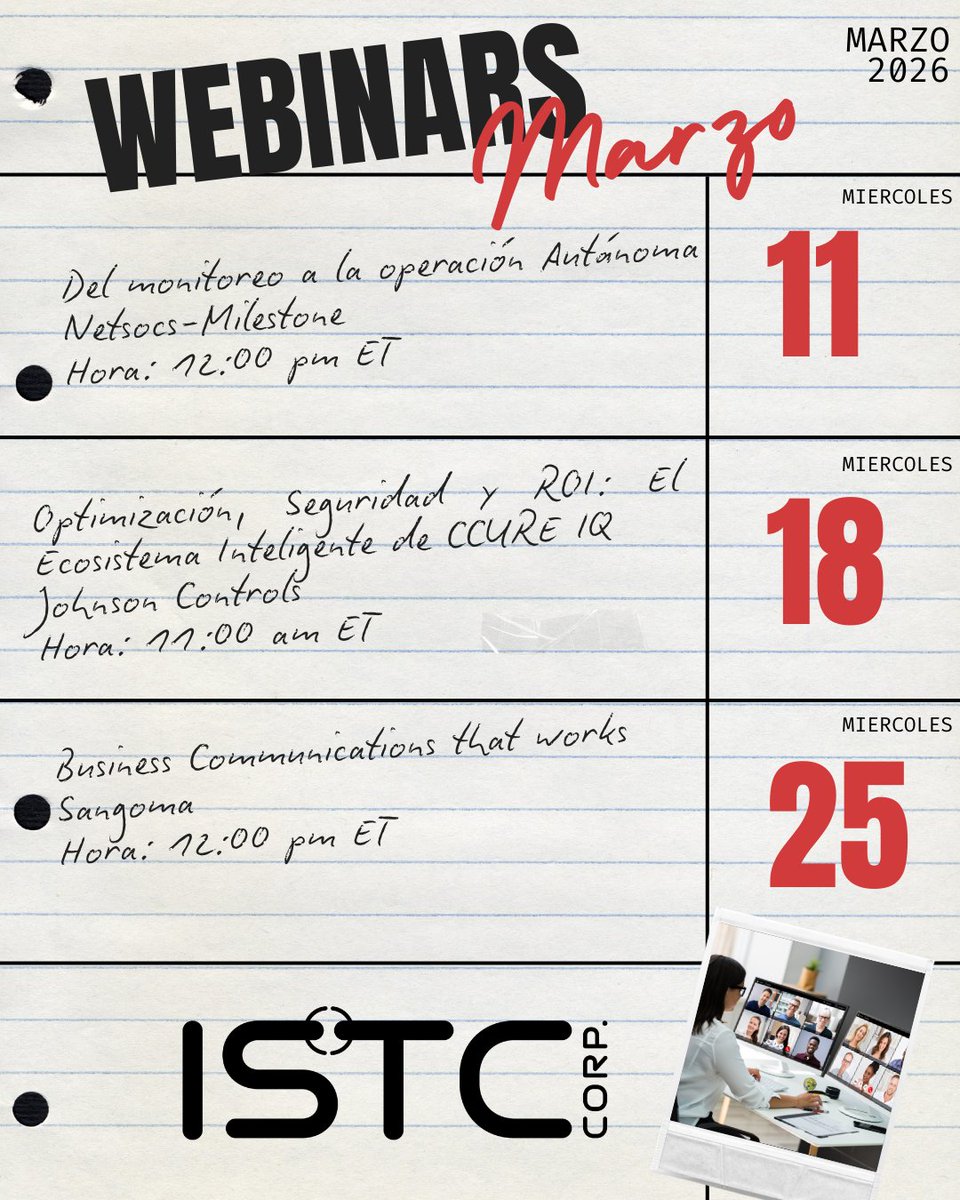 WEBINARS
Marzo
MARZO
2026
MIERCOLES
11
Del monitoreo a la operación Autónoma
Netsocs-Milestone
Hora: 12:00 pm ET
MIERCOLES
18
Optimización, Seguridad y ROI: El
Ecosistema Inteligente de CCURE IQ
Johnson Controls
Hora: 11:00 am ET
MIERCOLES
25
Business Communications that works
Sangoma
Hora: 12:00 pm ET
ISTC
CORP.